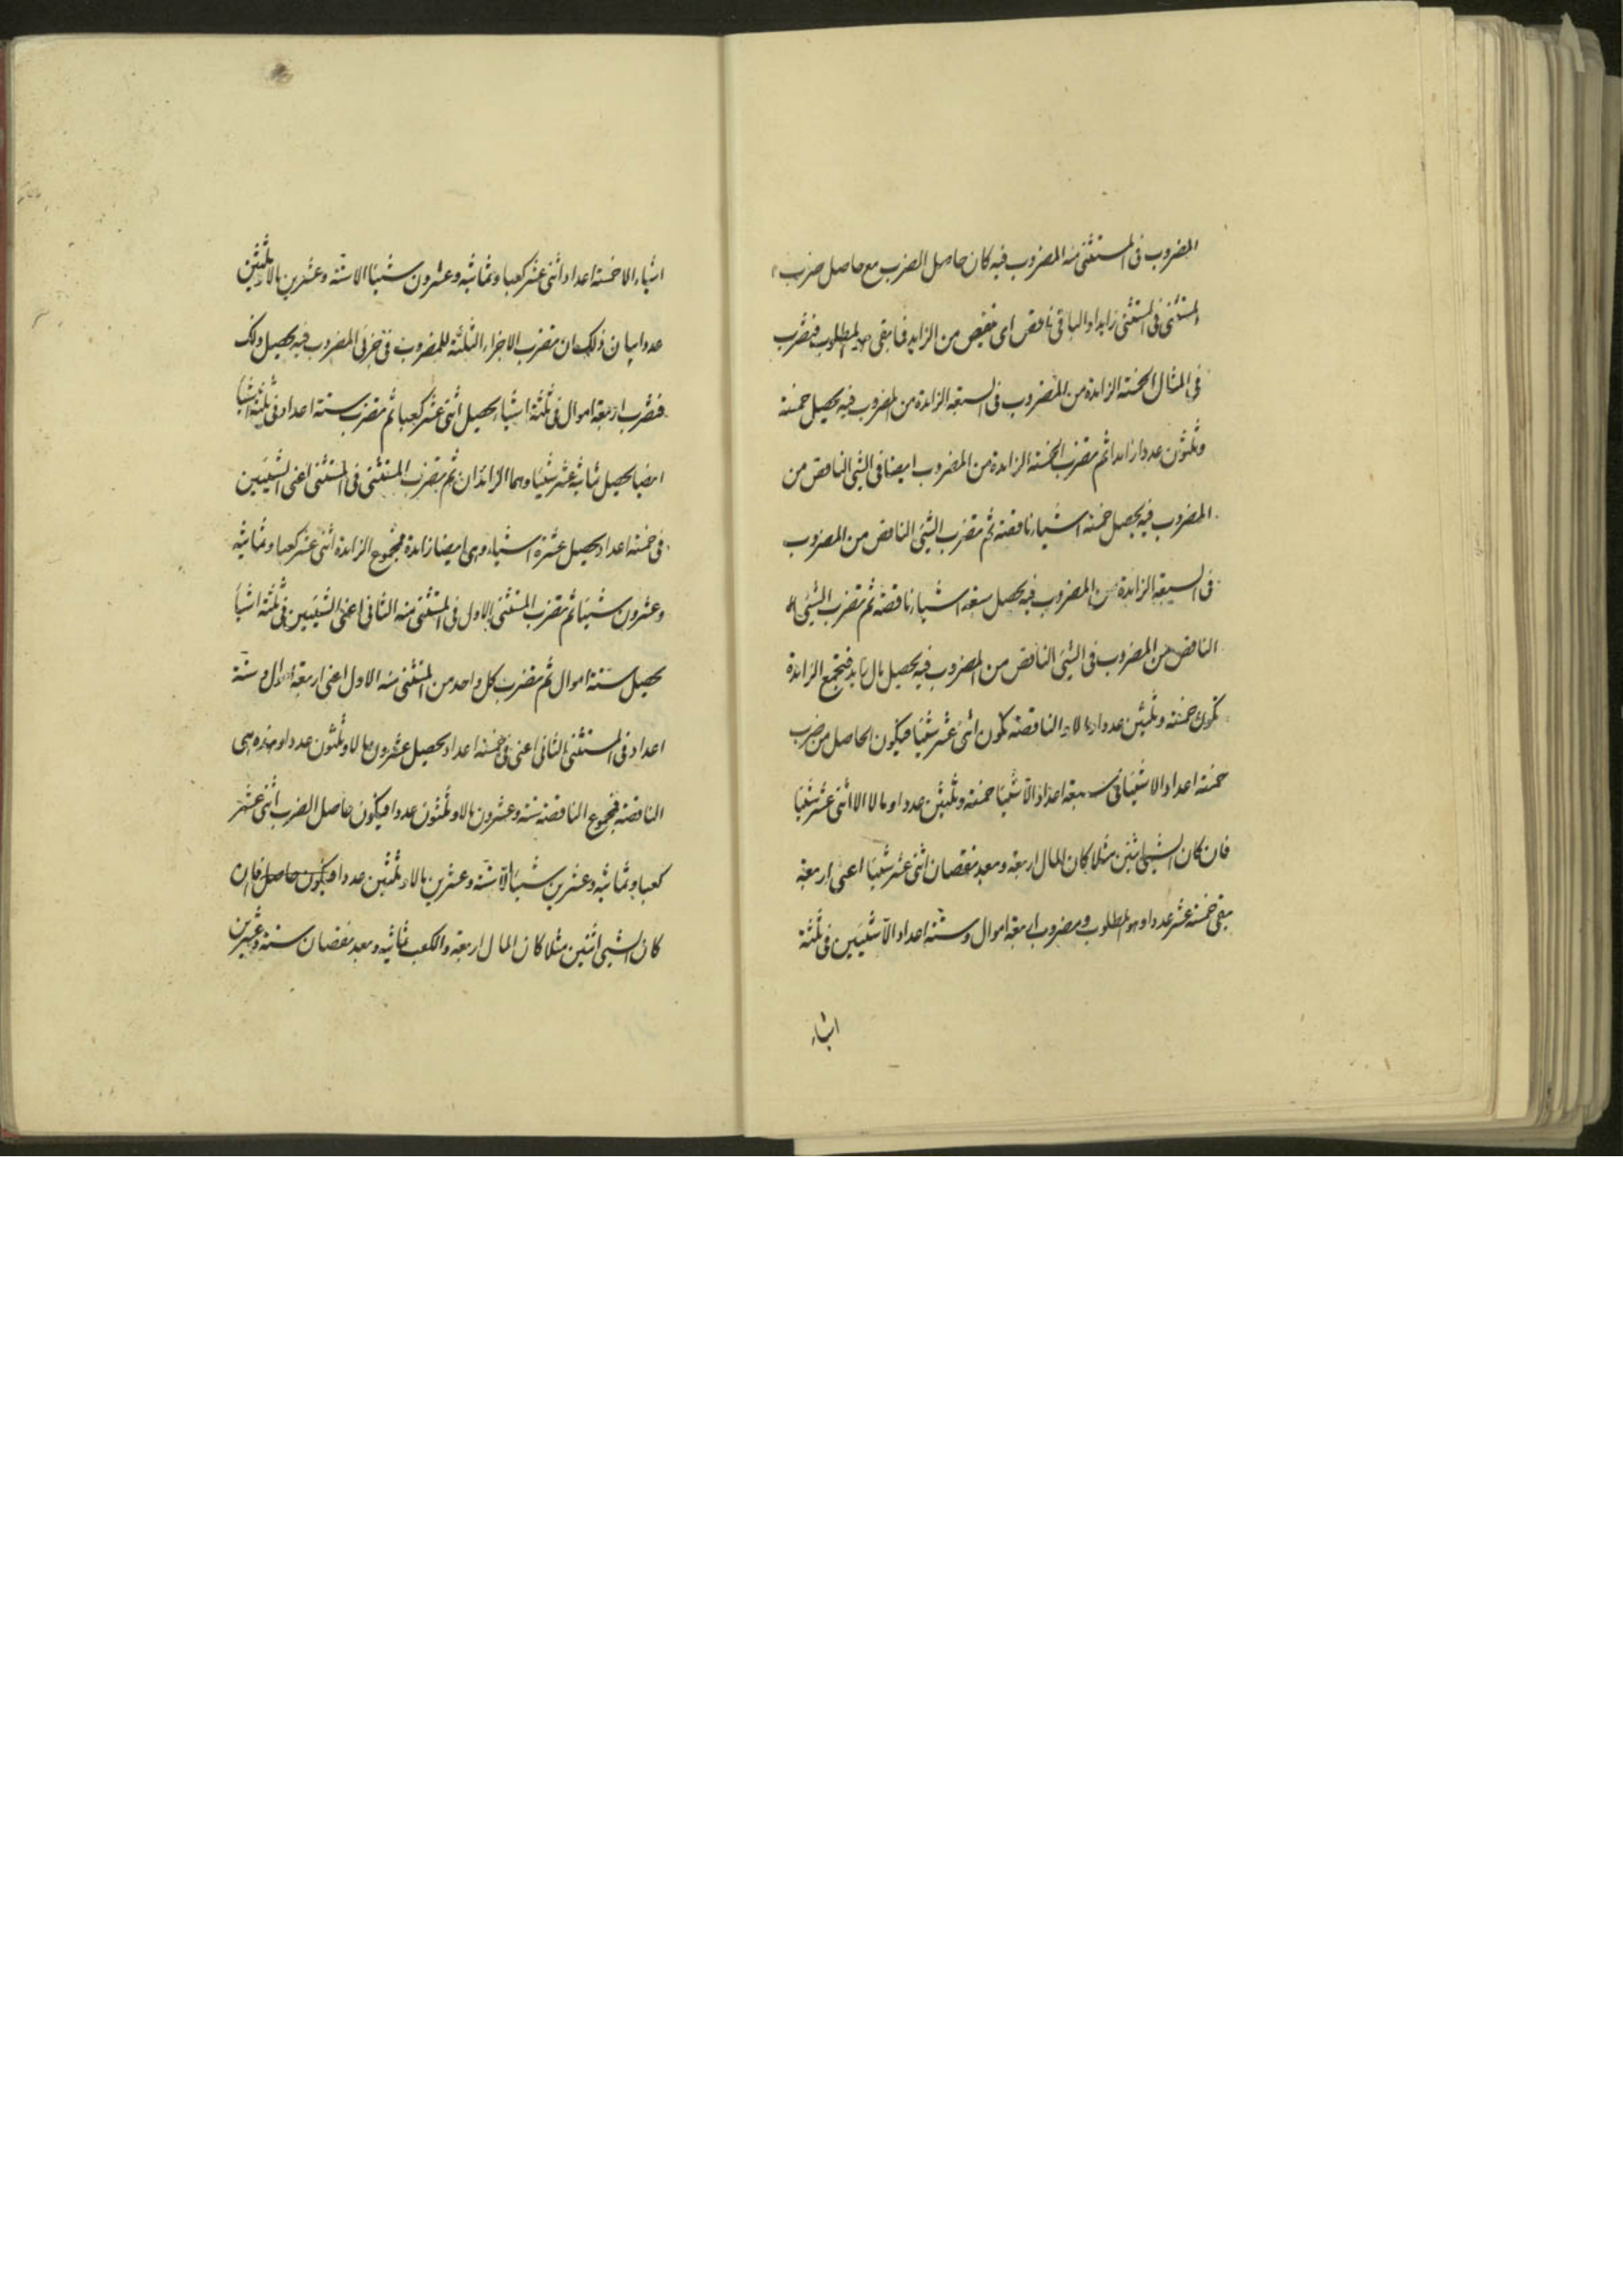 المضروب فى المستثنى منه المضروب فيه كان حاصل الضرب مع حاصل ضرب
المستثنى فى المستثنى زايدا والباقى ناقص اى ينقص من الزايد فما بقى هو المطلوب فنضرب
فى المثال الخمسة الزايدة من المضروب فى السبعة الزايدة من المضروب فيه يحصل خمسة
وثلثون عددا زايدا ثم نضرب الخمسة الزايدة من المضروب ايضا فى الشئ الناقص من
المضروب فيه يحصل خمسة اشياء ناقصة ثم نضرب الشئ الناقص من المضروب
فى السبعة الزايدة من المضروب فيه يحصل سبعة اشياء ناقصة ثم نضرب الشئ
الناقص من المضروب فى الشئ الناقص من المضروب فيه يحصل مال زايد فنجمع الزايدة
تكون خمسة وثلثين عددا ومالا والناقصة تكون اثنى عشر شيئا فيكون الحاصل من ضرب
خمسة اعداد الا شيئا فى سبعة اعداد الا شيئا خمسة وثلثين عددا ومالا الا اثنى عشر شيئا
فان كان الشئ اثنين مثلا كان المال اربعة وبعد نقصان اثنى عشر شيئا اعنى اربعة
يبقى خمسة عشر عددا وهو المطلوب ومضروب اربعة اموال وستة اعداد الا شيئين فى ثلثة
اشياء
اشياء الا خمسة اعداد اثنى عشر كعبا وثمانية وعشرون شيئا الا ستة وعشرين مالا وثلثين
عددا بيان ذلك ان نضرب الاجزاء الثلثة للمضروب فى جزئى المضروب فيه يحصل ذلك
فنضرب اربعة اموال فى ثلثة اشياء يحصل اثنى عشر كعبا ثم نضرب ستة اعداد فى ثلثة اشيا
ايضا يحصل ثمانية عشر شيئا وهما الزائدان ثم نضرب المستثنى فى المستثنى اعنى الشيئين
فى خمسة اعداد يحصل عشرة اشياء وهى ايضا زايدة فمجموع الزايدة اثنى عشر كعبا وثمانية
وعشرون شيئا ثم نضرب المستثنى الاول فى المستثنى منه الثانى اعنى الشيئين فى ثلثة اشيا
يحصل ستة اموال ثم نضرب كل واحد من المستثنى منه الاول اعنى اربعة اموال وستة
اعداد فى المستثنى الثانى اعنى فى خمسة اعداد يحصل عشرون مالا وثلثون عددا وهذه هى
الناقصة فمجموع الناقصة ستة وعشرون مالا وثلثون عددا فيكون حاصل الضرب اثنى عشر
كعبا وثمانية وعشرين شيئا الا ستة وعشرين مالا وثلثين عددا فيكون حاصل فان
كان الشئ اثنين مثلا كان المال اربعة والكعب ثمانية وبعد نقصان ستة وعشرين